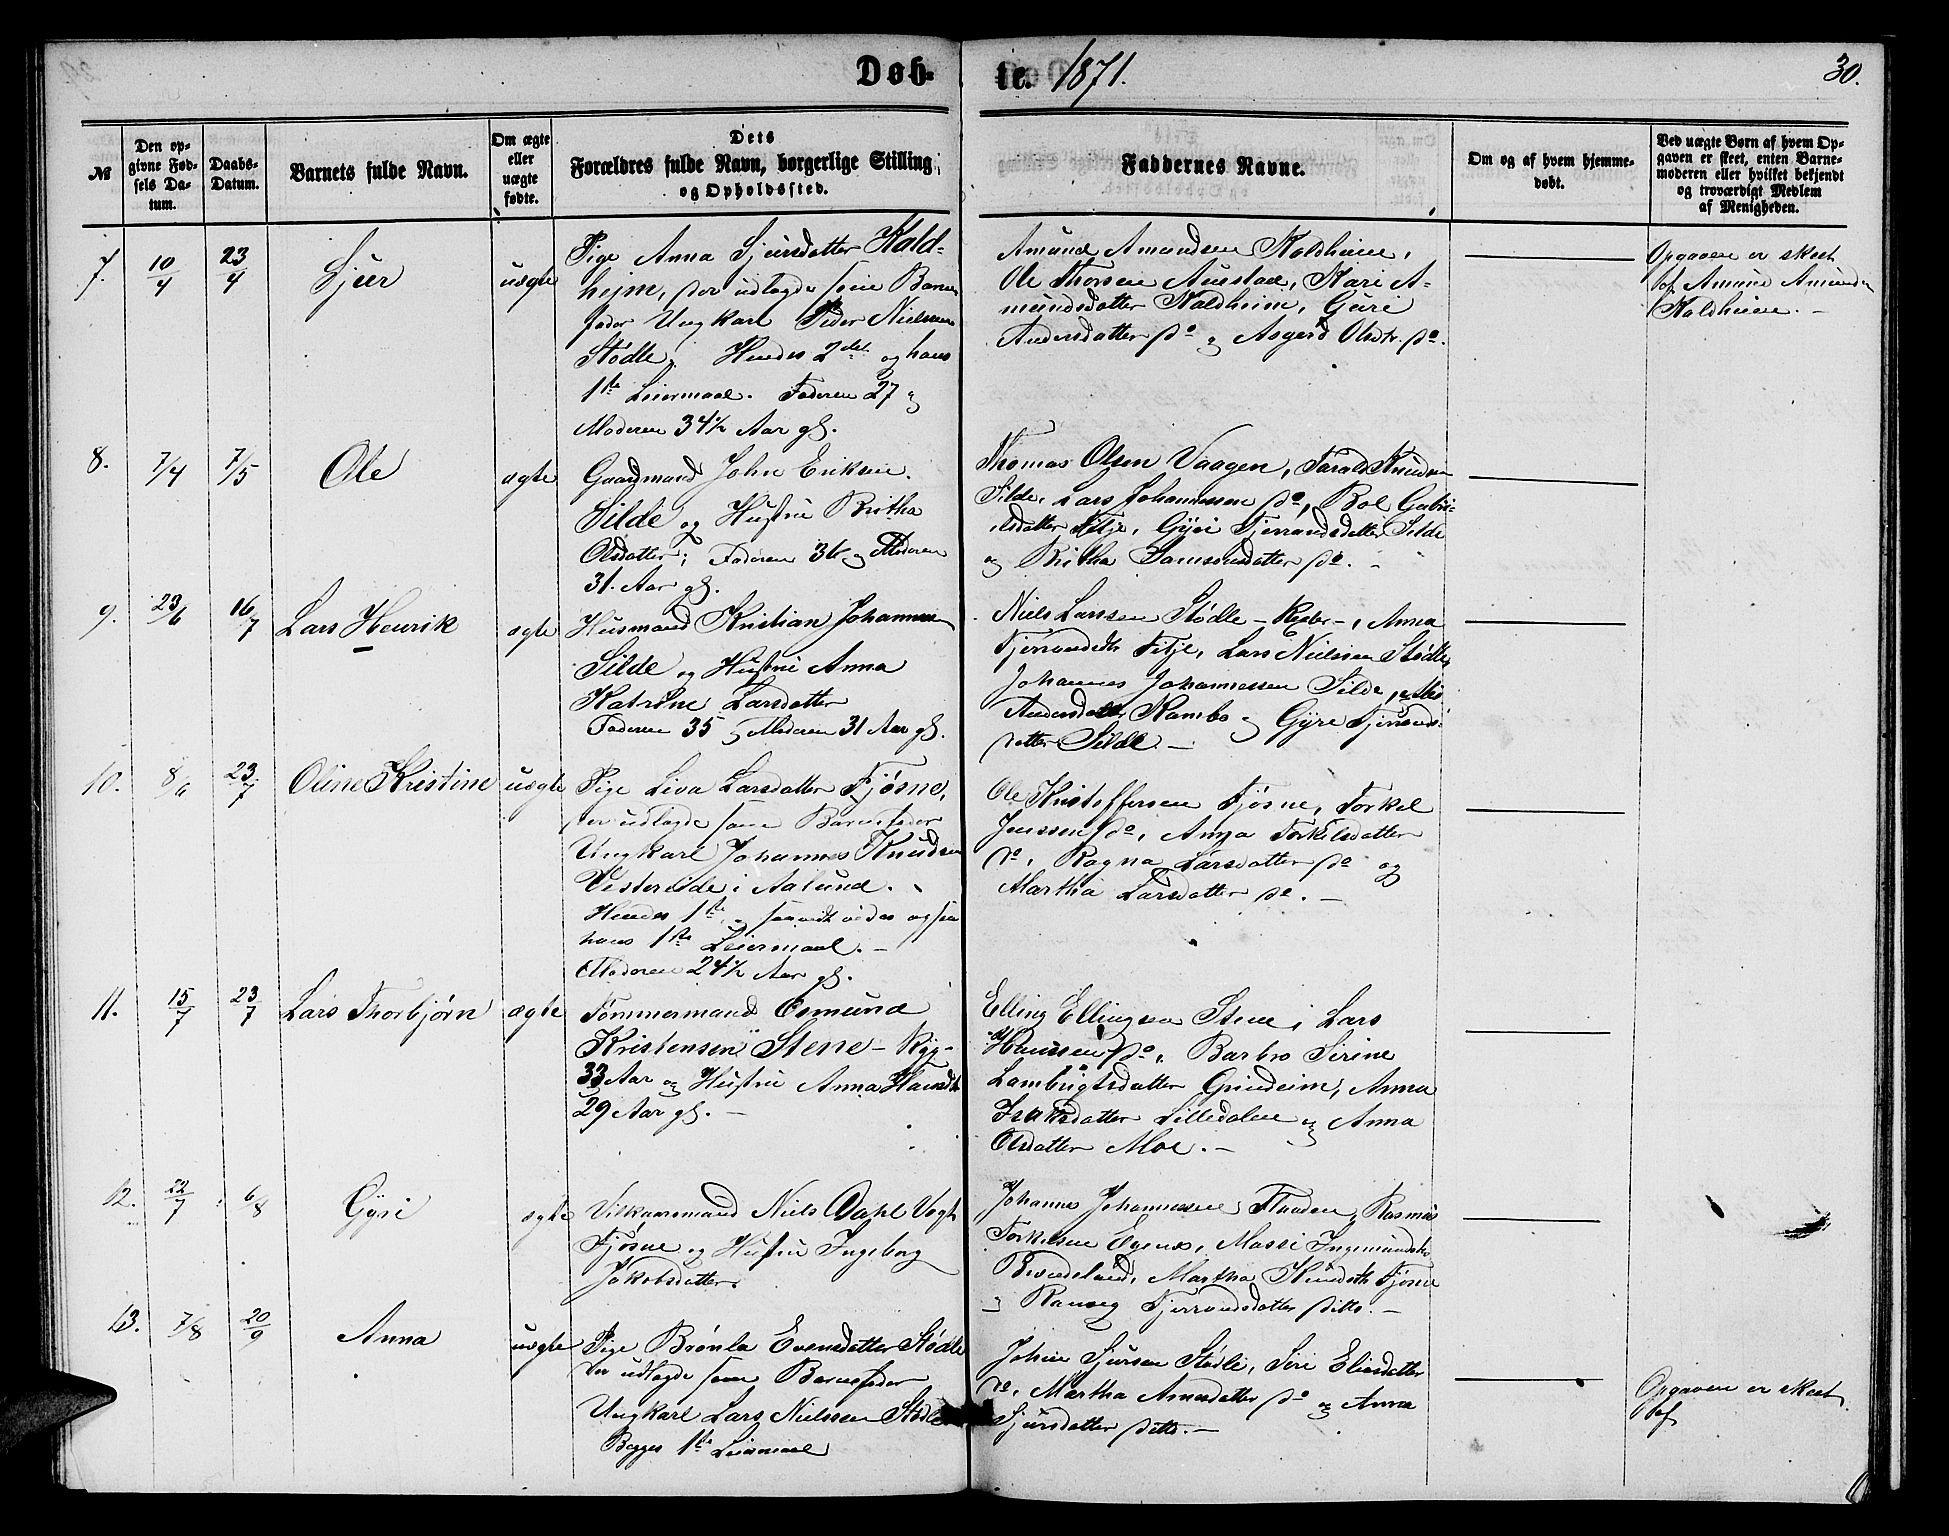 Døb-
te. 1871.
30.
№
Den op-
givne Fød-
sels Da-
tum.
Daabs-
Datum.
Barnets fulde Navn.
Om ægte
eller
uægte
fødte.
Dets
Forældres fulde Navn, borgerlige Stilling
og Opholdssted.
Faddernes Navne.
Om og af hvem hjemme-
døbt.
Ved uægte Børn af hvem Op-
gaven er skeet, enten Barne-
moderen eller hvilket bekjendt
og troværdigt Medlem
af Menigheden.
7. 10/4 23/4 Sjur uægte
Pige Anna Sjursdatter Hald-
hejm, der udlagde som Barne
fader Ungkarl Peder Nielsen
Stødle. Hendes 2det og hans
1ste Leiermaal. Faderen 27 og
Moderen 34½ Aar gl.
Amund Amundsen Haldheim,
Ole Thorsen Austad, Kari A-
mundsdatter Haldheim, Guri
Andersdatter do og Asgerd Olsdtr. do.
Opgaven er skeet
af Amund Amundsen
Haldheim.
8. 7/4 7/5 Ole ægte
Gaardmand John Eriksen
Silde og Hustru Britha
Olsdatter; Faderen 36 og Moderen
31. Aar gl.
Thomas Olsen Vaagen, Tarald Knudsen
Silde, Lars Johannessen do, Bol Gabri-
elsdatter Fitje, Gyri Fjerrandsdatter Silde
og Britha Samsonsdatter do.
9. 23/6 16/7 Lars Henrik ægte
Husmand Kristian Johannesen
Silde og Hustru Anna
Katrine Larsdatter
Faderen 35 og Moderen 31 Aar gl.
Niels Larssen Stødle, Anna
Fjerrandsdtr Fitje, Lars Nielssen Stødle,
Johannes Johannessen Silde,
Andersdatter Kambo og Gyre Fjerrands-
datter Silde.
10. 8/6 23/7 Oline Kristine uægte
Pige Liva Larsdatter Fjøsne,
der udlagde som Barnefader
Ungkarl Johannes Knudsen
i Aalund.
Hendes 1ste og saavidt vides ogsaa
hans 1ste Leiermaal.
Moderen 24½ Aar gl.
Ole Kristoffersen Fjøsne, Torkel
Jenssen do, Anna Torkelsdatter
do, Ragna Larsdatter do og
Martha Larsdatter do.
11. 15/7 23/7 Lars Thorbjørn ægte
Tømmermand Osmund
Kristensen Stene
33 Aar og Hustru Anna Hansdtr
29 Aar gl.
Elling Ellingsen Stene, Lars
Hanssen do, Barbro Sirine
Lambrigtsdatter Grindeim, Anna
Isaksdatter Lilledalen og Anna
Olsdatter Moe.
12. 22/7 6/8 Gyri ægte
Vilkaarsmand Niels Dahl Vogt
Fjøsne og Hustru Ingeborg
Jakobsdatter.
Johannes Johannessen Flaaden, Rasmus
Torkelsen, Massi Ingemundsdtr
Martha Knudsdtr Fjøsne
og Ranveg Fjerrandsdatter ditto.
13. 7/8 20/9 Anna uægte
Pige Brønla Evensdatter Stødle
der udlagde som Barnefader
Ungkarl Lars Nielssen Stødle
Begges 1ste Leiermaal
Johan Sjursen Stødle, Siri Eliasdatter
do, Martha Amundsdatter do og Anna
Sjursdatter ditto.
Opgaven er skeet
af